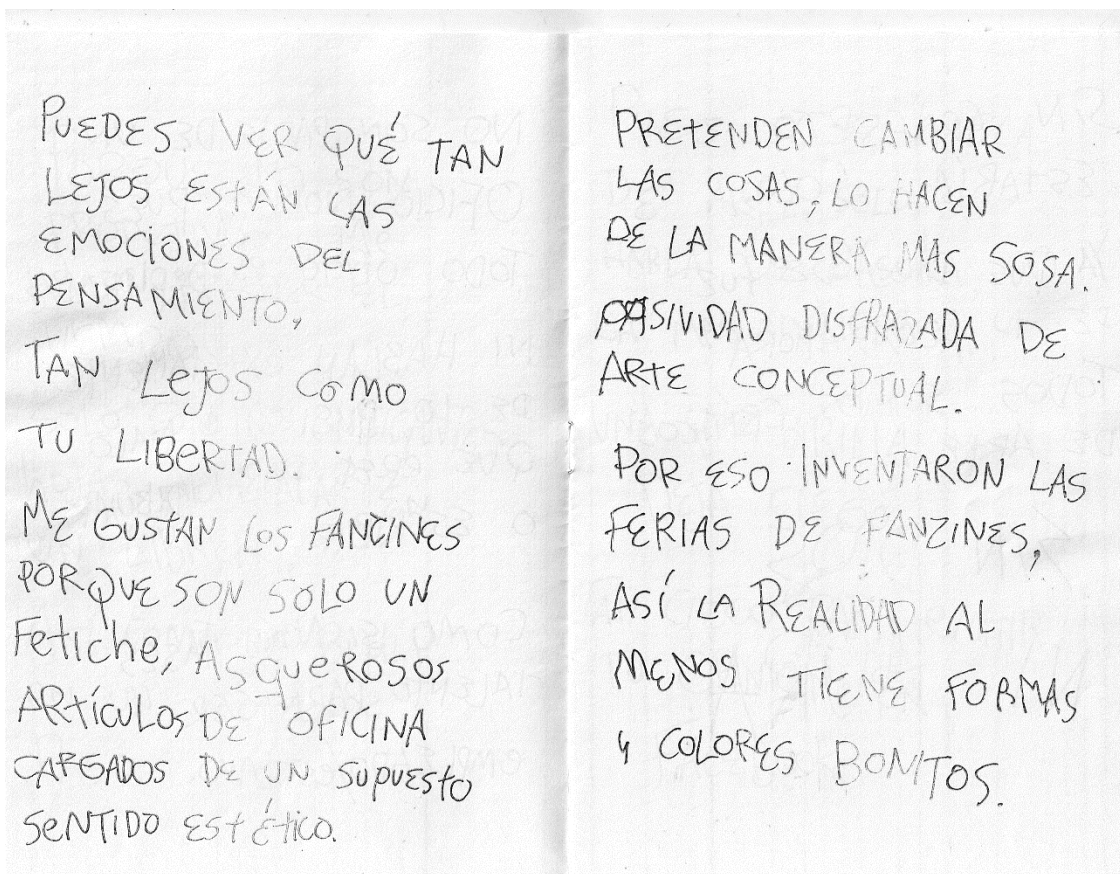 PUEDES VER QUÉ TAN
LEJOS ESTÁN LAS
EMOCIONES DEL
PENSAMIENTO,
TAN LEJOS COMO
TU LIBERTAD.
ME GUSTAN LOS FANZINES
PORQUE SON SOLO UN
Fetiche, ASqueROSOS
ARtíCULOS DE OFICINA
CARGADOS DE UN SUPUESTO
SeNTIDO EStÉtico.
PRETENDEN CAMBIAR
LAS COSAS, LO HACEN
DE LA MANERA MAS SOSA.
PASIVIDAD DISFRAZADA DE
ARTE CONCEPTUAL.
POR ESO INVENTARON LAS
FERIAS DE FANZINES,
ASÍ LA REALIDAD AL
MENOS TIENE FORMAS
Y COLORES BONITOS.